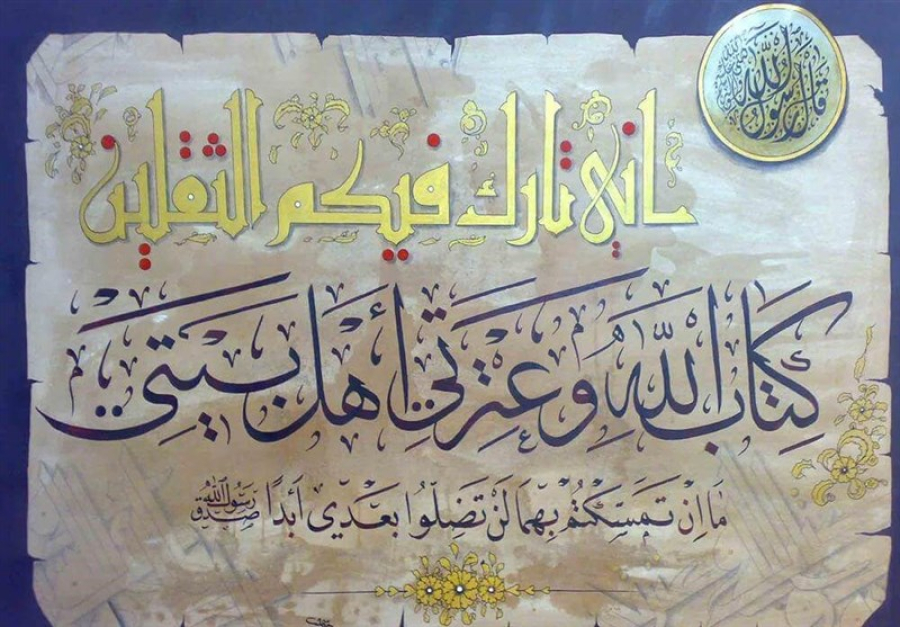 قال رسول الله صلى الله عليه وآله وسلم
إني تارك فيكم الثقلين
كِتَابَ اللهِ وَعِتْرَتِي أَهْلَ بَيْتِي
مَا إِنْ تَمَسَّكْتُمْ بِهِمَا لَنْ تَضِلُّوا بَعْدِي أَبَدًا صَدَقَ رَسُولُ الله